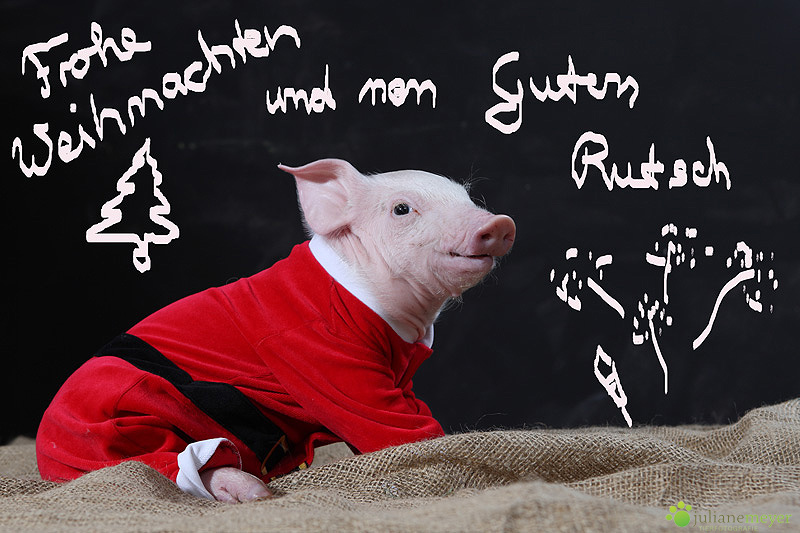 Frohe
Weihnachten
und nen Guten
Rutsch
juliane meyer